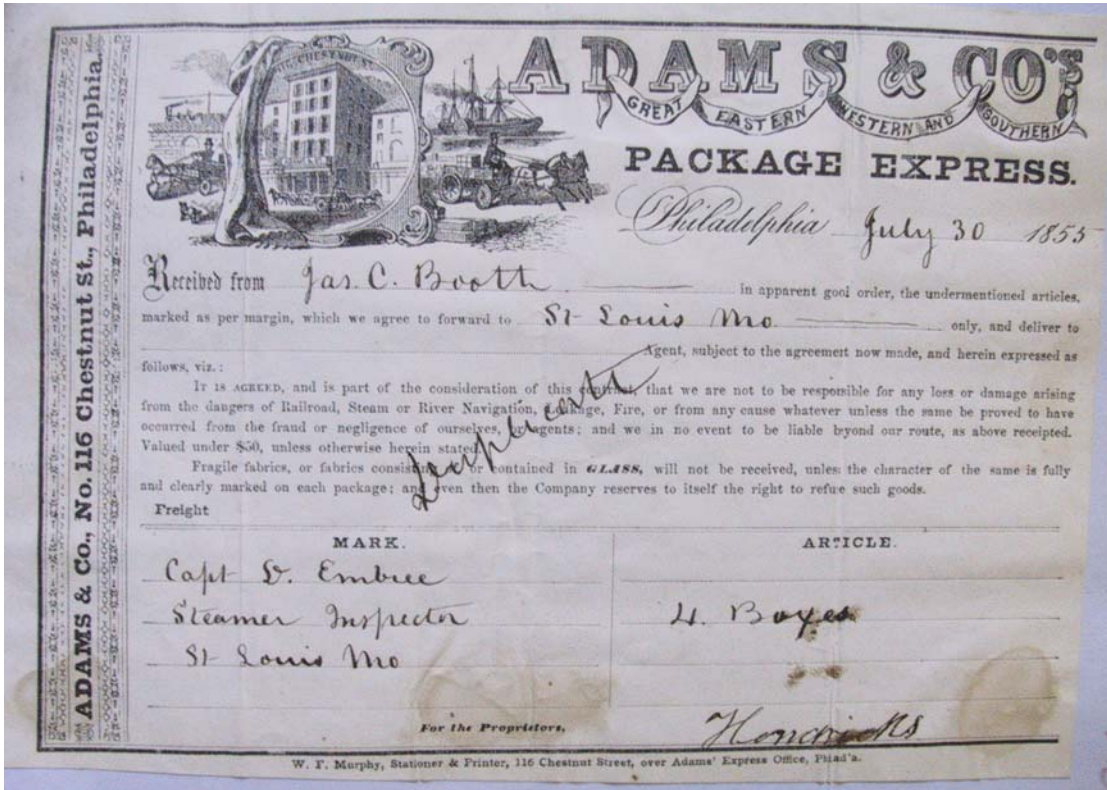 ADAMS & Co., No. 116 Chestnut St., Philadelphia.
116, CHESTNUT ST
ADAMS & CO'S
GREAT EASTERN WESTERN AND SOUTHERN
PACKAGE EXPRESS.
Philadelphia July 30 1855
Received from Jas. C. Booth in apparent good order, the undermentioned articles,
marked as per margin, which we agree to forward to St Louis Mo only, and deliver to
Agent, subject to the agreement now made, and herein expressed as
follows, viz.:
IT IS AGREED, and is part of the consideration of this contract, that we are not to be responsible for any loss or damage arising
from the dangers of Railroad, Steam or River Navigation, Leakage, Fire, or from any cause whatever unless the same be proved to have
occurred from the fraud or negligence of ourselves, or agents; and we in no event to be liable beyond our route, as above receipted.
Valued under $50, unless otherwise herein stated.
Fragile fabrics, or fabrics consisting of or contained in GLASS, will not be received, unless the character of the same is fully
and clearly marked on each package; and even then the Company reserves to itself the right to refuse such goods.
Freight
MARK. ARTICLE.
Capt D. Embree
Steamer Inspector 4. Boxes
St Louis Mo
For the Proprietors, Hendricks
W. F. Murphy, Stationer & Printer, 116 Chestnut Street, over Adams' Express Office, Philad'a.